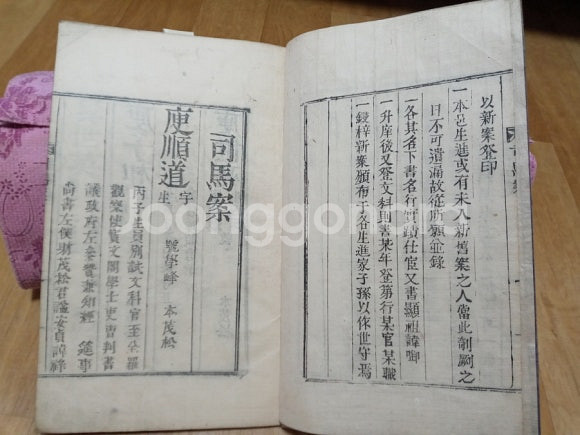 以新案登印
一本邑生進或有未入新舊案之人當此剞劂之
日不可遺漏故從所願並錄
一各其名下書名行實蹟仕宦又書顯祖諱啣
一升庠後又登文科則書某年登第行某官某職
一鋟梓新案頒布于各生進家子孫以作世守焉
司馬案
庾順道 字 生 號學峰 本茂松
丙子生員別試文科官至全羅
觀察使寶文閣學士吏曹判書
議政府左參贊兼知經筵事